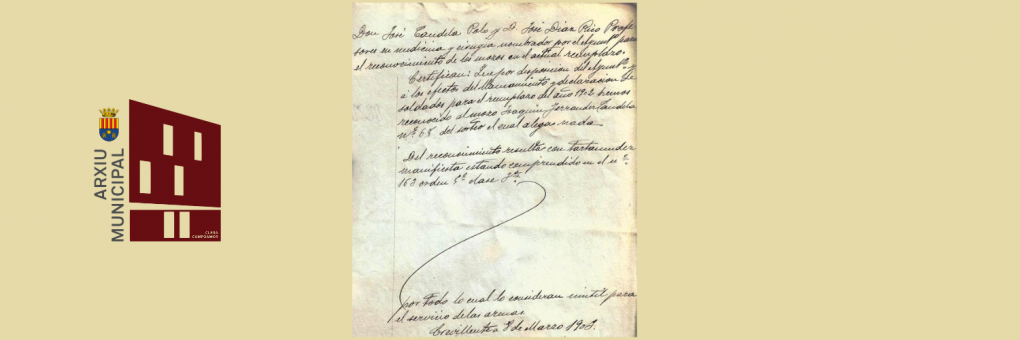 ARXIU
MUNICIPAL
CLARA
CAMPOAMOR
Don José Candela Polo y D. José Díaz Rico Profe
sores en medicina y cirugia nombrados por el Ayunt.º para
el reconocimiento de los mozos en el actual reemplazo.
Certifican: Que por disposicion del Ayunt.º y
á los efectos del llamamiento y declaracion de
soldados para el reemplazo del año 1902 hemos
reconocido al mozo Joaquin Ferrandez Candela
nº 68 del sorteo el cual alega: nada
Del reconocimiento resulta con tartamudez
manifiesta estando comprendido en el nº
163 orden 5º clase
por todo lo cual lo consideran inutil para
el servicio de las armas
Crevillente 8 de Marzo 1903.